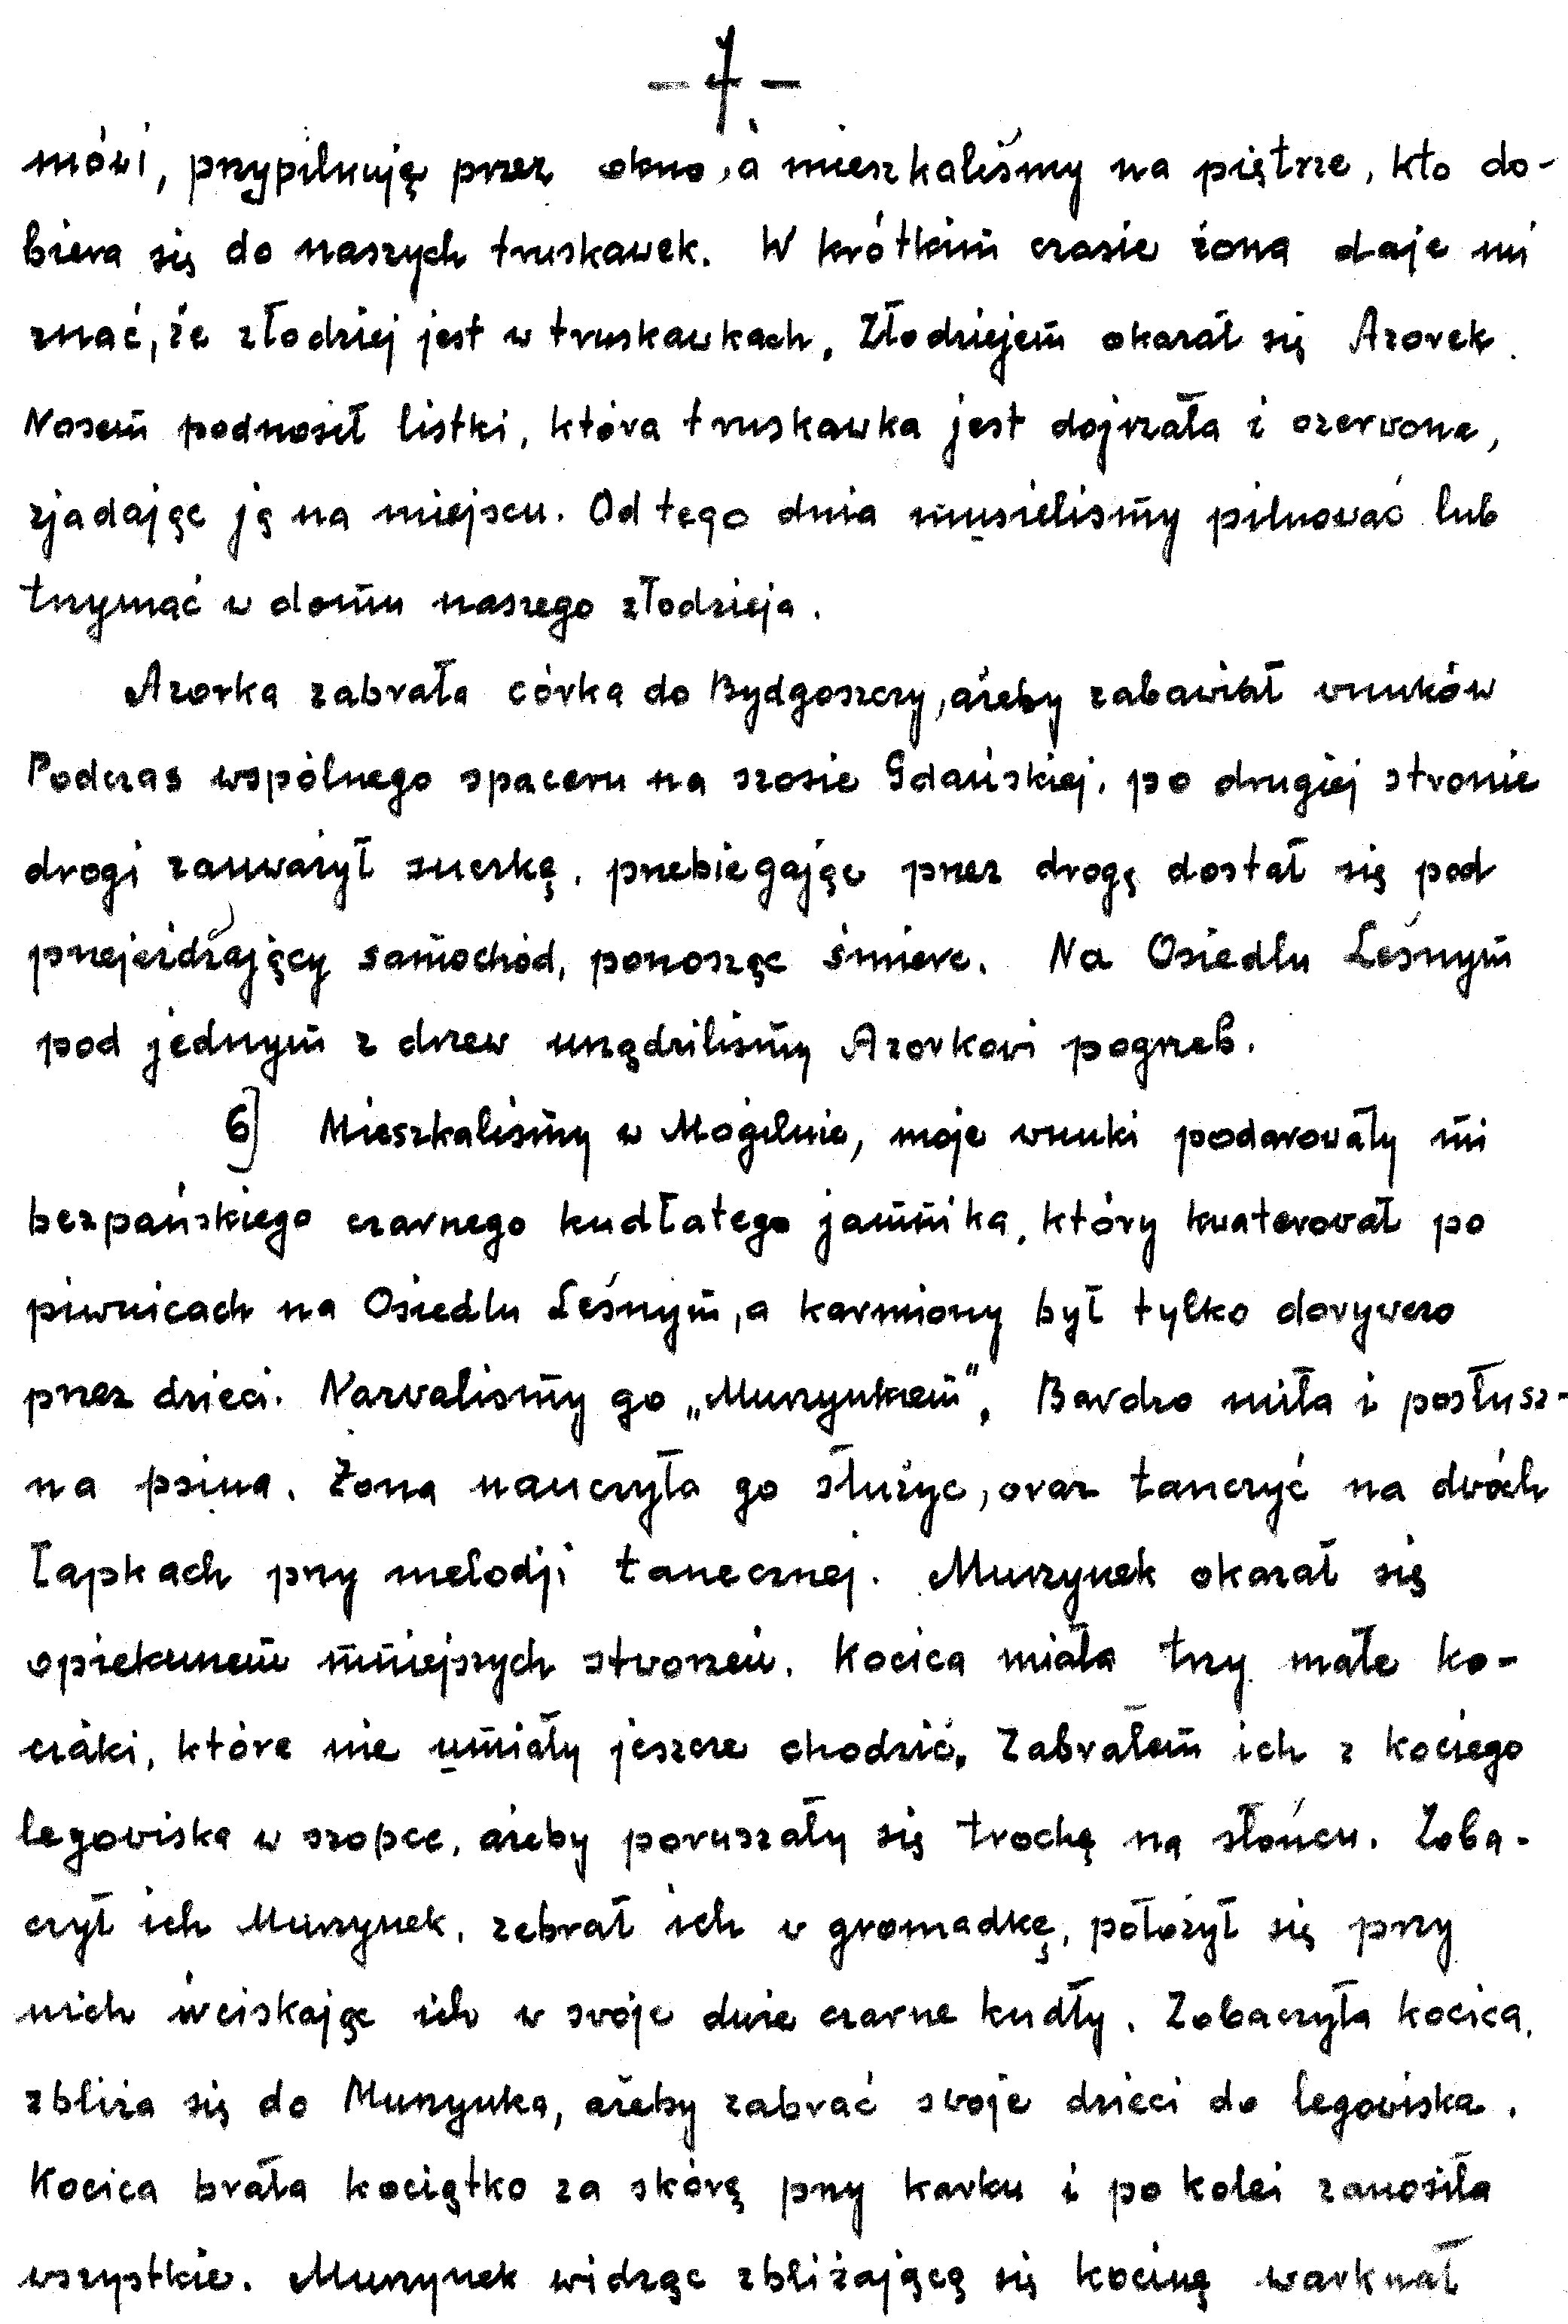 - 7 -
mówi, przypilnuję przez okno, a mieszkaliśmy na piętrze, kto do-
biera się do naszych truskawek. W krótkim czasie żona daje mi
znać, że złodziej jest w truskawkach. Złodziejem okazał się Azorek.
Nosem podnosił listki, która truskawka jest dojrzała i czerwona,
zjadając ją na miejscu. Od tego dnia musieliśmy pilnować lub
trzymać w domu naszego złodzieja.
Azorka zabrała córka do Bydgoszczy, ażeby zabawiał wnuków
Podczas wspólnego spaceru na szosie Gdańskiej, po drugiej stronie
drogi zauważył suczkę, przebiegając przez drogę dostał się pod
przejeżdżający samochód, ponosząc śmierć. Na Osiedlu Leśnym
pod jednym z drzew urządziliśmy Azorkowi pogrzeb.
6] Mieszkaliśmy w Mogilnie, moje wnuki podarowały mi
bezpańskiego czarnego kudłatego jamnika, który kwaterował po
piwnicach na Osiedlu Leśnym, a karmiony był tylko dorywczo
przez dzieci. Nazwaliśmy go „Murzynkiem”. Bardzo miła i posłusz-
na psina. Żona nauczyła go służyć, oraz tańczyć na dwóch
łapkach przy melodji tanecznej. Murzynek okazał się
opiekunem mniejszych stworzeń. Kocica miała trzy małe ko-
ciaki, które nie umiały jeszcze chodzić. Zabrałem ich z kociego
legowiska w szopce, ażeby poruszały się trochę na słońcu. Zoba-
czył ich Murzynek, zebrał ich w gromadkę, położył się przy
nich wciskając ich w swoje duże czarne kudły. Zobaczyła kocica,
zbliża się do Murzynka, ażeby zabrać swoje dzieci do legowiska.
Kocica brała kociątko za skórę przy karku i po kolei zanosiła
wszystkie. Murzynek widząc zbliżającą się kocicę warknął